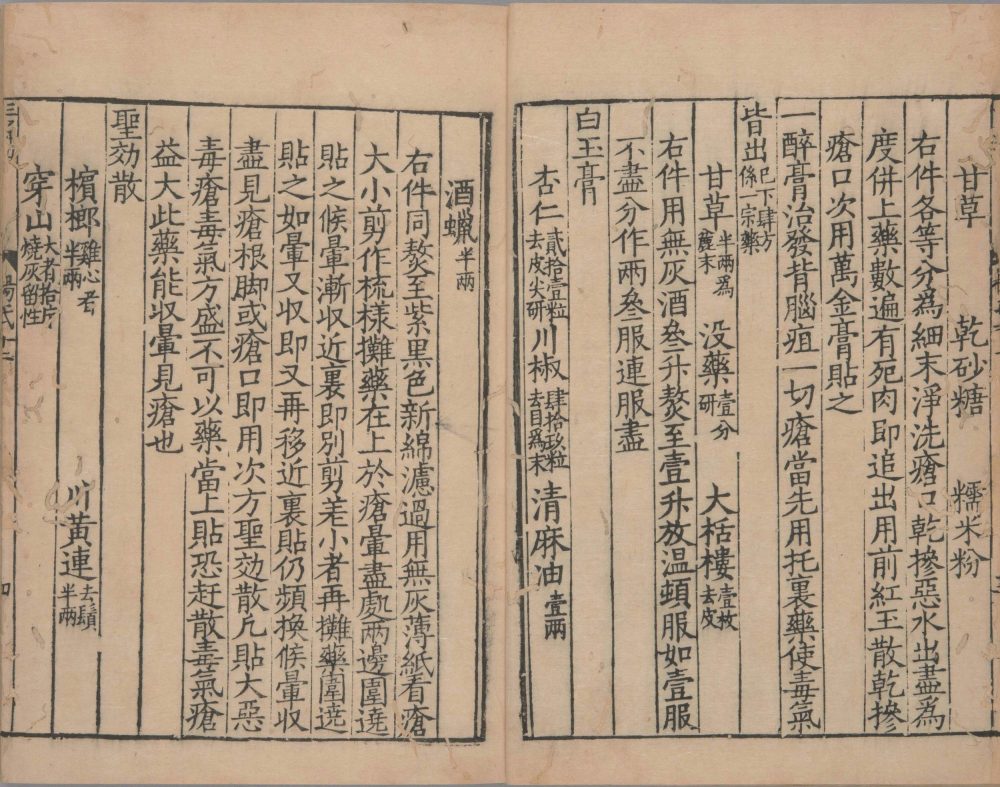 甘草 乾砂糖 糯米粉
右件各等分為細末淨洗瘡口乾摻惡水出盡為
度併上藥數遍有死肉即追出用前紅玉散乾摻
瘡口次用萬金膏貼之
一醉膏治發背腦疽一切瘡當先用托裏藥使毒氣
皆出已下肆方係宗藥
甘草半兩為麄末 没藥壹分研 大栝樓壹枚去皮
右件用無灰酒叄升熬至壹升放溫頓服如壹服
不盡分作兩叄服連服盡
白玉膏
杏仁貳拾壹粒去皮尖研 川椒肆拾玖粒去目為末 清麻油壹兩
酒蠟半兩
右件同熬至紫黑色新綿濾過用無灰薄紙看瘡
大小剪作梳樣攤藥在上於瘡暈盡處兩邊圍遶
貼之候暈漸収近裏即別剪差小者再攤藥圍遶
貼之如暈又収即又再移近裏貼仍頻換候暈収
盡見瘡根脚或瘡口即用次方聖効散凡貼大惡
毒瘡毒氣方盛不可以藥當上貼恐赶散毒氣瘡
益大此藥能収暈見瘡也
聖効散
檳榔雞心者半兩 川黃連去鬚半兩
穿山大者拾片燒灰留性
楊氏十二
四